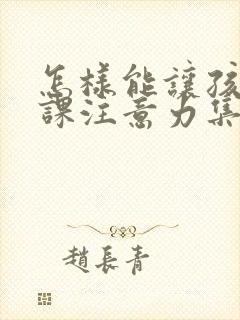 怎樣能讓孩
課注意力集
趙長青